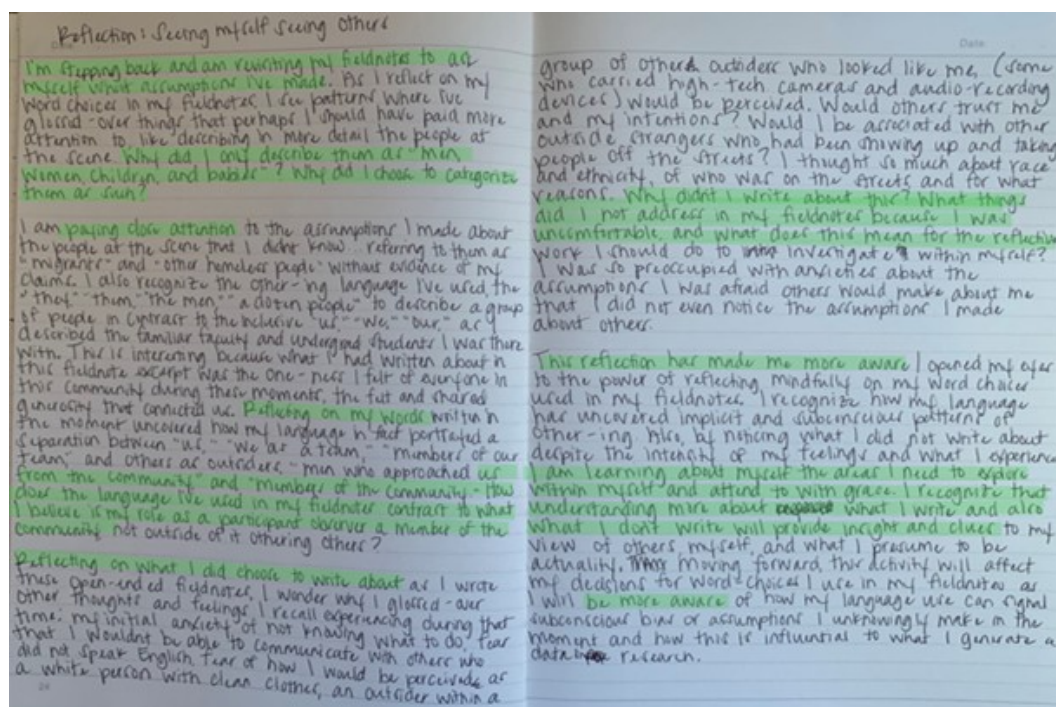 Reflection: Seeing myself seeing others
I'm stepping back and am rewriting my fieldnotes to ask
myself what assumptions I've made. As I reflect on my
word choices in my fieldnotes I see patterns where I've
glossed-over things that perhaps I should have paid more
attention to like describing in more detail the people at
the scene. Why did I only describe them as "men,
women, children, and babies"? Why did I choose to categorize
them as such?
I am paying close attention to the assumptions I made about
the people at the scene that I didn't know: referring to them as
"migrants" and "other homeless people" without evidence of my
claims. I also recognize the other-ing language I've used, the
"they" "them," "the men," "a dozen people" to describe a group
of people in contrast to the inclusive "us," "we," "our," as I
described the familiar faculty and undergrad students I was there
with. This is interesting because what I had written about in
this fieldnote excerpt was the one-ness I felt of everyone in
this community during these moments, the fun and shared
generosity that connected us. Reflecting on my words written in
the moment uncovered how my language in fact portrayed a
separation between "us," "we as a team," "members of our
team," and others as outsiders, "men who approached us
from the community" and "members of the community." How
does the language I've used in my fieldnotes contrast to what
I believe is my role as a participant observer a member of the
community not outside of it othering others?
Reflecting on what I did choose to write about as I wrote
these open-ended fieldnotes, I wonder why I glossed-over
other thoughts and feelings I recall experiencing during that
time: my initial anxiety of not knowing what to do, fear
that I wouldn't be able to communicate with others who
did not speak English, fear of how I would be perceived as
a white person with clean clothes, an outsider within a
Date:
group of other outsiders who looked like me, (some
who carried high-tech cameras and audio-recording
devices) would be perceived. Would others trust me
and my intentions? Would I be associated with other
outside strangers who had been showing up and taking
people off the streets? I thought so much about race
and ethnicity, of who was on the streets and for what
reasons. Why didn't I write about this? What things
did I not address in my fieldnotes because I was
uncomfortable, and what does this mean for the reflective
work I should do to investigate within myself?
I was so preoccupied with anxieties about the
assumptions I was afraid others would make about me
that I did not even notice the assumptions I made
about others.
This reflection has made me more aware I opened my eyes
to the power of reflecting, mindfully on my word choices
used in my fieldnotes. I recognize how my language
has uncovered implicit and subconscious patterns of
other-ing. Also, by noticing what I did not write about
despite the intensity of my feelings and what I experience
I am learning about myself the areas I need to explore
within myself and attend to with grace. I recognize that
understanding more about what I write and also
what I don't write will provide insight and clues to my
view of others, myself, and what I presume to be
actuality. Moving forward, this activity will affect
my decisions for word-choices I use in my fieldnotes as
I will be more aware of how my language use can signal
subconscious bias or assumptions I unknowingly make in the
moment and how this is influential to what I generate as
data research.